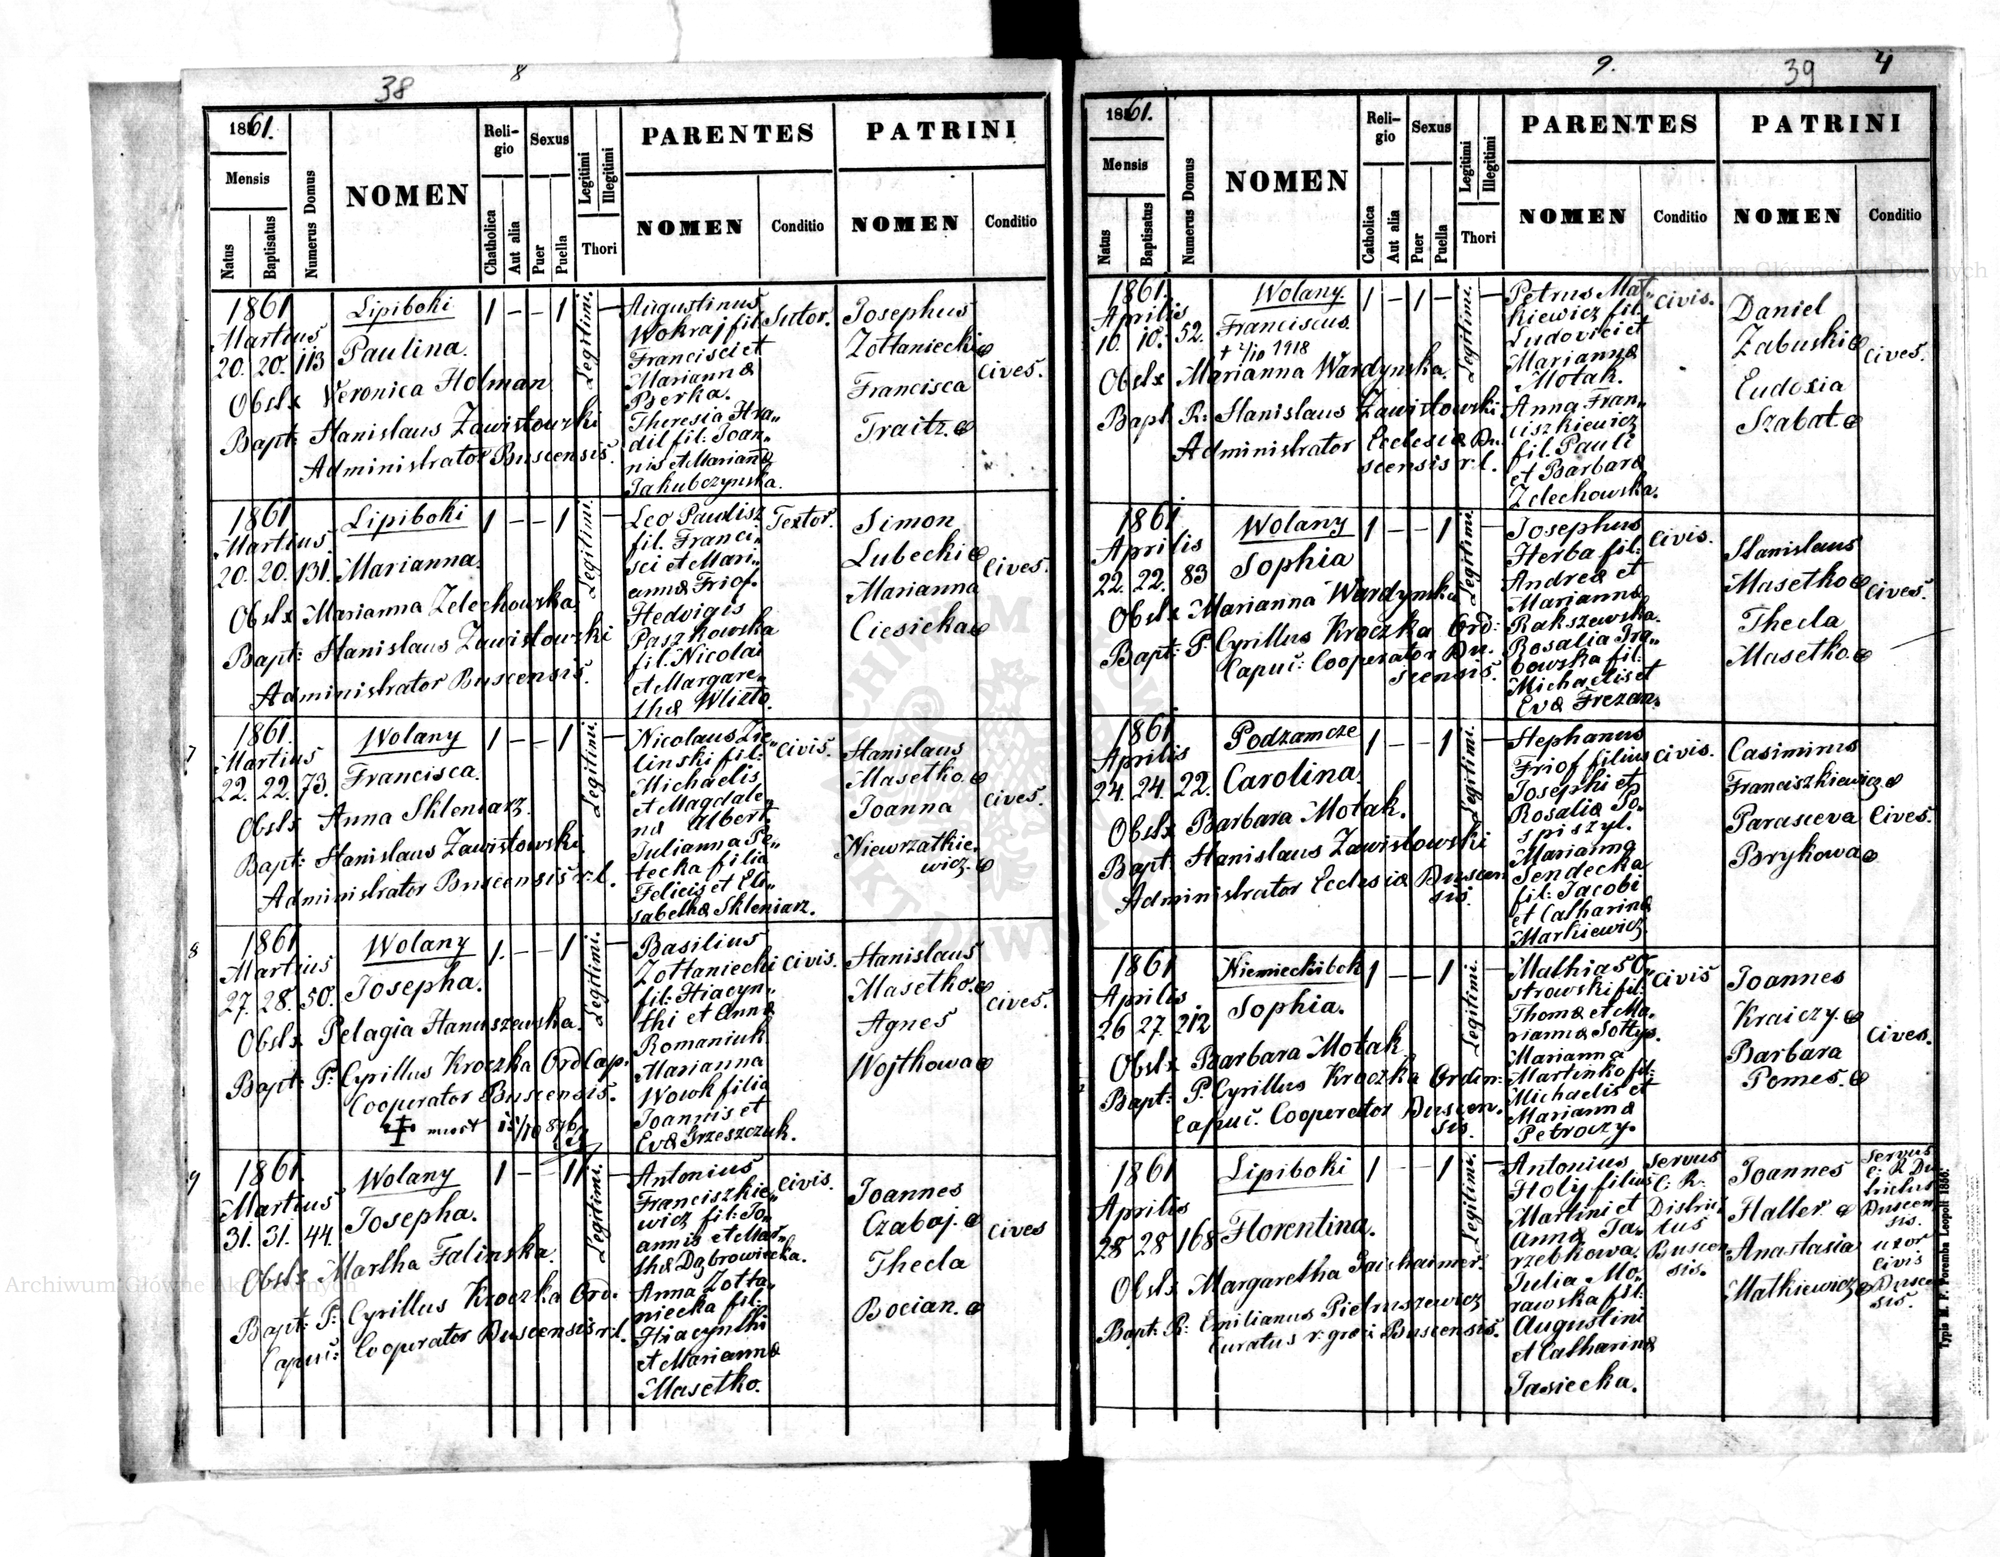 38
8
1861.
Mensis
Natus
Baptisatus
Numerus Domus
NOMEN
Religio
Chatholica
Aut alia
Sexus
Puer
Puella
Legitimi
Illegitimi
Thori
PARENTES
NOMEN
Conditio
PATRINI
NOMEN
Conditio
1861
Martius
20. 20. 113
Lipiboki
Paulina.
1 – – 1
Legitimi.
Obstx Veronica Holman
Bapt: Stanislaus Zawistowski
Administrator Buscensis.
Augustinus
Wokraj fil:
Francisci et
Mariannæ
Berka.
Theresia Hra„
dil fil: Joan„
nis et Mariannæ
Jakubczynska.
Sutor.
Josephus
Zołtaniecki &
Francisca
Traitz. &
Cives.
1861
Martius
20. 20. 131.
Lipiboki
Marianna.
1 – – 1
Legitimi.
Obstx Marianna Zelechowska
Bapt: Stanislaus Zawistowski
Administrator Buscensis.
Leo Pawlisz
fil. Franci„
sci et Mari„
annæ Friof.
Hedvigis
Paszkowska
fil. Nicolai
et Margare„
thæ Wlizło.
Textor.
Simon
Lubecki &
Marianna
Ciesicka &
Cives.
7
1861.
Martius
22. 22. 73.
Wolany
Francisca.
1 – – 1
Legitimi.
Obstx Anna Skleniarz.
Bapt: Stanislaus Zawistowski
Administrator Buscensis r. l.
Nicolaus Zie„
linski fil:
Michaelis
et Magdale„
næ Albert.
Julianna Pe„
tecka filia
Felicis et Eli„
sabethæ Skleniarz.
Civis.
Stanislaus
Masetko. &
Joanna
Niewrzatkie„
wicz. &
Cives.
8
1861
Martius
27. 28. 50.
Wolany
Josepha.
1. – – 1
Legitimi.
Obstx Pelagia Hanuszewska.
Bapt: P. Cyrillus Kroczka Ord Cap:
Cooperator Buscensis.
Basilius
Zołtaniecki
fil: Hiacyn„
thi et Annæ
Romaniuk
Marianna
Wowk filia
Joannis et
Evæ Grzeszczuk.
Civis.
Stanislaus
Masetko. &
Agnes
Wojtkowa &
Cives.
9
1861.
Martius
31. 31. 44.
Wolany
Josepha.
1 – – 1
Legitimi.
Obstx Martha Falinska.
Bapt: P. Cyrillus Kroczka Ord.
Capuc: Cooperator Buscensis r. l.
Antonius
Franciszkie„
wicz fil: Jo„
annis et Mar„
thæ Dąbrowiecka.
Anna Zołta„
niecka fil:
Hiacynthi
et Mariannæ
Masetko.
Civis.
Joannes
Czabaj. &
Thecla
Bocian. &
Cives
9.
39
4
1861.
Mensis
Natus
Baptisatus
Numerus Domus
NOMEN
Religio
Catholica
Aut alia
Sexus
Puer
Puella
Legitimi
Illegitimi
Thori
PARENTES
NOMEN
Conditio
PATRINI
NOMEN
Conditio
1861.
Aprilis
10. 10. 52.
Wolany.
Franciscus.
1918
1 – 1 –
Legitimi.
Obstx Marianna Wardynska.
Bapt. R: Stanislaus Zawistowski
Administrator Ecclesiæ Bu„
scensis r. l.
Petrus Mat„
kiewicz fil:
Ludovici et
Mariannæ
Motak.
Anna Fran„
ciszkiewicz
fil. Pauli
et Barbaræ
Zelechowska.
Civis.
Daniel
Zabuski &
Eudoxia
Szabat. &
Cives.
1861
Aprilis
22. 22. 83
Wolany
Sophia
1 – – 1
Legitimi.
Obstx Marianna Wardynska
Bapt: P. Cyrillus Kroczka Ord:
Capuc: Cooperator Bu„
scensis.
Josephus
Herba fil:
Andreæ et
Mariannæ
Rakszewska.
Rosalia Gra„
bowska fil:
Michaelis et
Evæ Frezan.
Civis.
Stanislaus
Masetko &
Thecla
Masetko. &
Cives.
1861
Aprilis
24. 24. 22.
Podzamcze
Carolina.
1 – – 1
Legitimi.
Obstx Barbara Motak.
Bapt Stanislaus Zawistowski
Administrator Ecclesiæ Buscen
sis.
Stephanus
Friof filius
Josephi et
Rosaliæ Po„
spiszyl.
Marianna
Sendecka
fil: Jacobi
et Catharinæ
Markiewicz.
Civis.
Casimirus
Franciszkiewicz. &
Parasceva
Brykowa &
Cives.
1861
Aprilis
26 27. 212
Niemieckibok
Sophia.
1 – – 1
Legitimi.
Obstx Barbara Motak
Bapt: P. Cyrillus Kroczka Ordin:
Capuc. Cooperator Buscen„
sis.
Mathias O„
strowski fil:
Thomæ et Ma„
riannæ Sołtys.
Marianna
Martinko fil:
Michaelis et
Mariannæ
Petroczy.
Civis
Joannes
Kraiczy. &
Barbara
Pomes. &
Cives.
1861
Aprilis
28 28 168
Lipiboki
Florentina.
1 – – 1
Legitimi.
Obstx Margaretha Gaichaimer.
Bapt: R: Emilianus Pietruszewicz
Curatus r: græci Buscensis.
Antonius
Holy filius
Martini et
Annæ Ja„
rzebkowa.
Julia Mo„
rawska fil:
Augustini
et Catharinæ
Jasiecka.
Servus
C: R.
Distric„
tus
Buscen
sis.
Joannes
Haller &
Anastasia
Matkiewicz &
Servus
C: R Di
strictus
Buscen
sis.
uxor
Civis
Busce
sis.
Typis M. F. Poremba Leopoli
Archiwum Główne Akt Dawnych
Archiwum Główne Akt Dawnych
ARCHIWUM GŁÓWNE AKT DAWNYCH